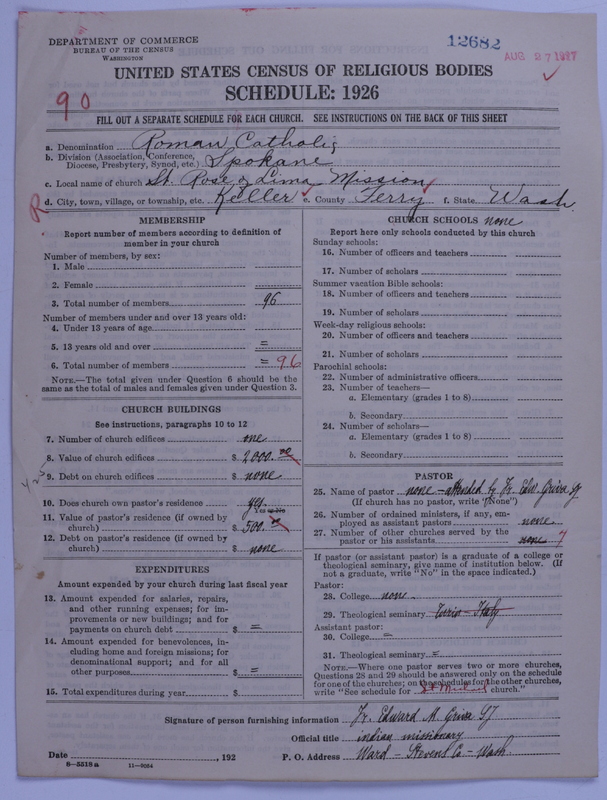 DEPARTMENT OF COMMERCE
BUREAU OF THE CENSUS
WASHINGTON
12682
AUG 27 1927
UNITED STATES CENSUS OF RELIGIOUS BODIES
SCHEDULE: 1926
90
FILL OUT A SEPARATE SCHEDULE FOR EACH CHURCH. SEE INSTRUCTIONS ON THE BACK OF THIS SHEET
a. Denomination Roman Catholic
b. Division (Association, Conference, Diocese, Presbytery, Synod, etc.) Spokane
c. Local name of church St. Rose of Lima Mission
R d. City, town, village, or township, etc. Keller e. County Ferry f. State Wash.
MEMBERSHIP
Report number of members according to definition of member in your church
Number of members, by sex:
1. Male
2. Female
3. Total number of members 96
Number of members under and over 13 years old:
4. Under 13 years of age
5. 13 years old and over =
6. Total number of members = 96
NOTE.—The total given under Question 6 should be the same as the total of males and females given under Question 3.
CHURCH BUILDINGS
See instructions, paragraphs 10 to 12
7. Number of church edifices one
8. Value of church edifices $ 2000.00
9. Debt on church edifices $ none
10. Does church own pastor's residence yes
11. Value of pastor's residence (if owned by church) $ 500.00
12. Debt on pastor's residence (if owned by church) $ none
EXPENDITURES
Amount expended by your church during last fiscal year
13. Amount expended for salaries, repairs, and other running expenses; for improvements or new buildings; and for payments on church debt $ =
14. Amount expended for benevolences, including home and foreign missions; for denominational support; and for all other purposes $ =
15. Total expenditures during year $
CHURCH SCHOOLS none
Report here only schools conducted by this church
Sunday schools:
16. Number of officers and teachers
17. Number of scholars
Summer vacation Bible schools:
18. Number of officers and teachers
19. Number of scholars
Week-day religious schools:
20. Number of officers and teachers
21. Number of scholars
Parochial schools:
22. Number of administrative officers
23. Number of teachers—
a. Elementary (grades 1 to 8)
b. Secondary
24. Number of scholars—
a. Elementary (grades 1 to 8)
b. Secondary
PASTOR
25. Name of pastor none - attended by Fr. Edw. Griva SJ
(If church has no pastor, write "None")
26. Number of ordained ministers, if any, employed as assistant pastors none
27. Number of other churches served by the pastor or his assistants none 7
If pastor (or assistant pastor) is a graduate of a college or theological seminary, give name of institution below. (If not a graduate, write "No" in the space indicated.)
Pastor:
28. College none
29. Theological seminary Turin - Italy
Assistant pastor:
30. College =
31. Theological seminary =
NOTE.—Where one pastor serves two or more churches, Questions 28 and 29 should be answered only on the schedule for one of the churches; on the schedules for the other churches, write "See schedule for St. Michael church."
Signature of person furnishing information Fr. Edward M. Griva SJ
Official title indian missionary
Date , 192 P. O. Address Ward - Stevens Co - Wash.
8—5518 a 11—9054